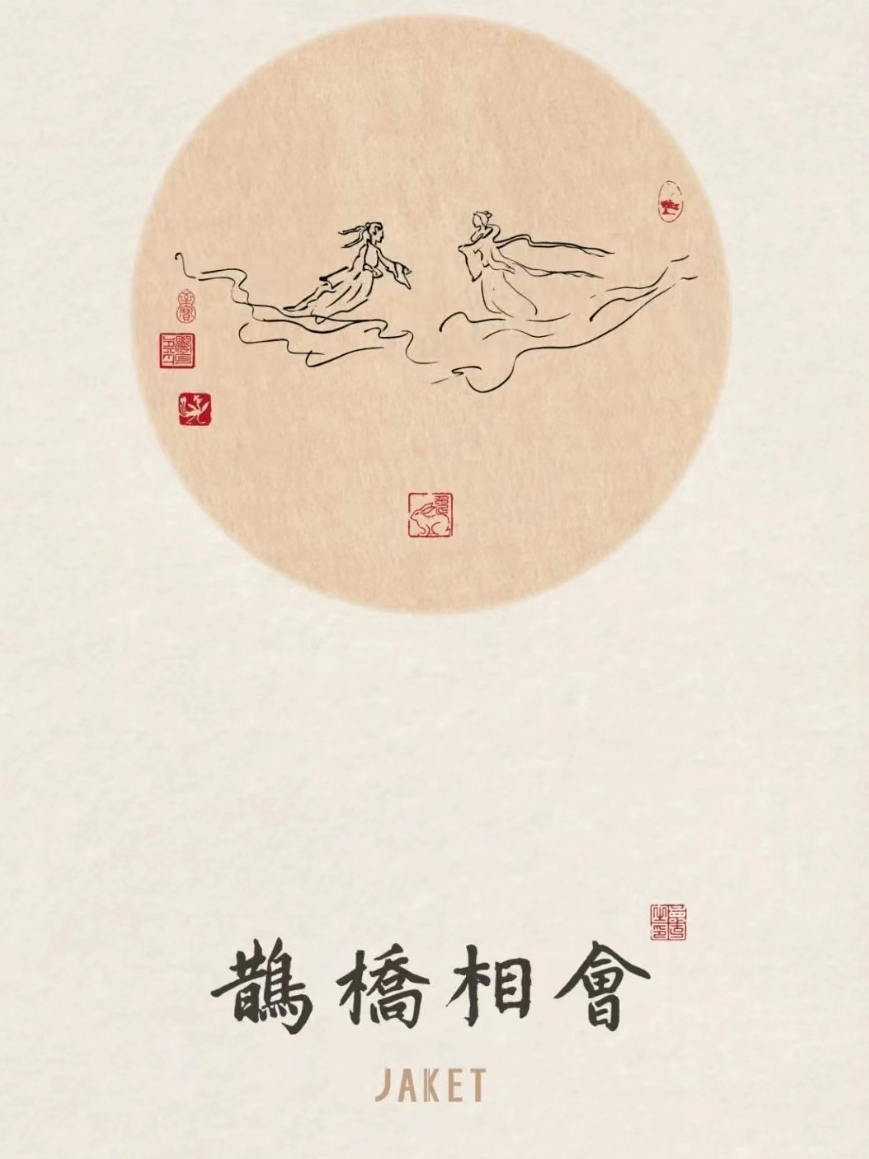 鵲橋相會
JAKET